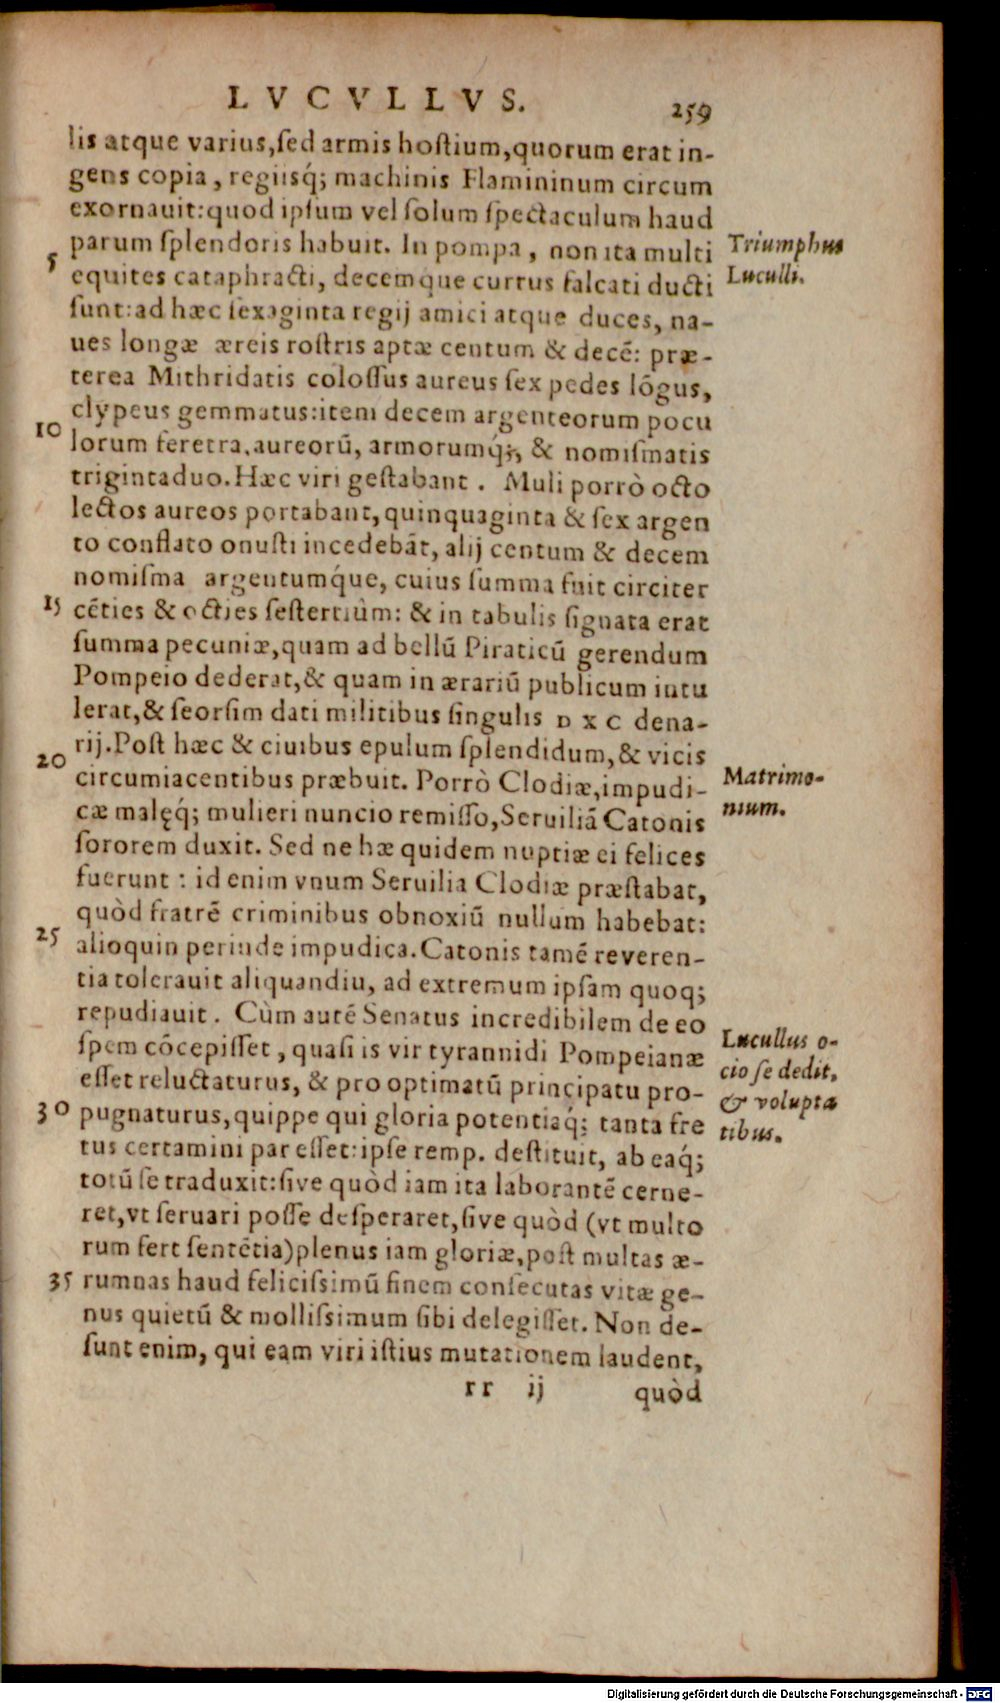 LVCVLLVS.
259
lis atque varius,sed armis hostium,quorum erat in-
gens copia, regiisq́; machinis Flamininum circum
exornauit:quod ipsum vel solum spectaculum haud
parum splendoris habuit. In pompa, non ita multi
Triumphus
5
equites cataphracti, decemque currus falcati ducti
Luculli.
sunt:ad hæc sexaginta regij amici atque duces, na-
ues longæ æreis rostris aptæ centum & decē: præ-
terea Mithridatis colossus aureus sex pedes lōgus,
clypeus gemmatus:item decem argenteorum pocu
10
lorum feretra,aureorū, armorumq́;, & nomismatis
trigintaduo.Hæc viri gestabant. Muli porrò octo
lectos aureos portabant,quinquaginta & sex argen
to conflato onusti incedebāt, alij centum & decem
nomisma argentumq́ue, cuius summa fuit circiter
15
cēties & octies sestertiùm: & in tabulis signata erat
summa pecuniæ,quam ad bellū Piraticū gerendum
Pompeio dederat,& quam in ærariū publicum intu
lerat,& seorsim dati militibus singulis D X C dena-
rij.Post hæc & ciuibus epulum splendidum,& vicis
20
circumiacentibus præbuit. Porrò Clodiæ,impudi-
Matrimo-
cæ malęq́; mulieri nuncio remisso,Seruiliā Catonis
nium.
sororem duxit. Sed ne hæ quidem nuptiæ ei felices
fuerunt: id enim vnum Seruilia Clodiæ præstabat,
quòd fratrē criminibus obnoxiū nullum habebat:
25
alioquin perinde impudica.Catonis tamē reveren-
tia tolerauit aliquandiu, ad extremum ipsam quoq;
repudiauit. Cùm autē Senatus incredibilem de eo
Lucullus o-
spem cōcepisset, quasi is vir tyrannidi Pompeianæ
cio se dedit,
esset reluctaturus, & pro optimatū principatu pro-
& volupta
30
pugnaturus,quippe qui gloria potentiaq́; tanta fre
tibus.
tus certamini par esset:ipse remp. destituit, ab eaq́;
totū se traduxit:sive quòd iam ita laborantē cerne-
ret,vt seruari posse desperaret,sive quòd (vt multo
rum fert sentētia)plenus iam gloriæ,post multas æ-
35
rumnas haud felicissimū finem consecutas vitæ ge-
nus quietū & mollissimum sibi delegisset. Non de-
sunt enim, qui eam viri istius mutationem laudent,
rr ij
quòd
Digitalisierung gefördert durch die Deutsche Forschungsgemeinschaft - DFG